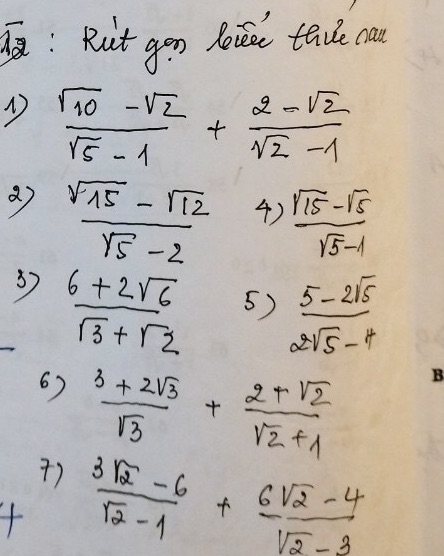 12 : Rút gọn biểu thức sau
1) (√10 - √2)/(√5 - 1) + (2 - √2)/(√2 - 1)
2) (√15 - √12)/(√5 - 2) 4) (√15 - √5)/(√5 - 1)
3) (6 + 2√6)/(√3 + √2) 5) (5 - 2√5)/(2√5 - 4)
6) (3 + 2√3)/√3 + (2 + √2)/(√2 + 1)
B
7) (3√2 - 6)/(√2 - 1) + (6√2 - 4)/(√2 - 3)